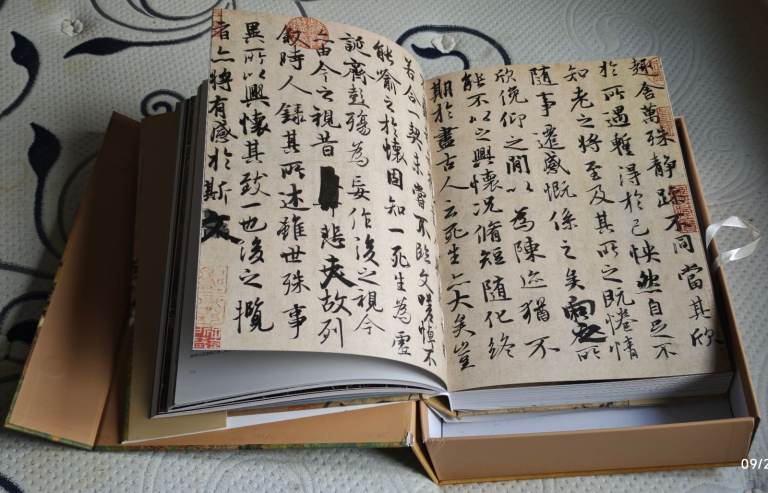 趣舍萬殊静躁不同當其欣
於所遇暫得於己怏然自足不
知老之将至及其所之既惓情
随事遷感慨係之矣向之所
欣俛仰之閒以為陳迹猶不
能不以之興懷況脩短随化終
期於盡古人云死生亦大矣豈
若合一契未嘗不臨文嗟悼不
能喻之於懷固知一死生為虛
誕齊彭殤為妄作後之視今
亦由今之視昔悲夫故列
叙時人録其所述雖世殊事
異所以興懷其致一也後之攬
者亦将有感於斯文
09/2